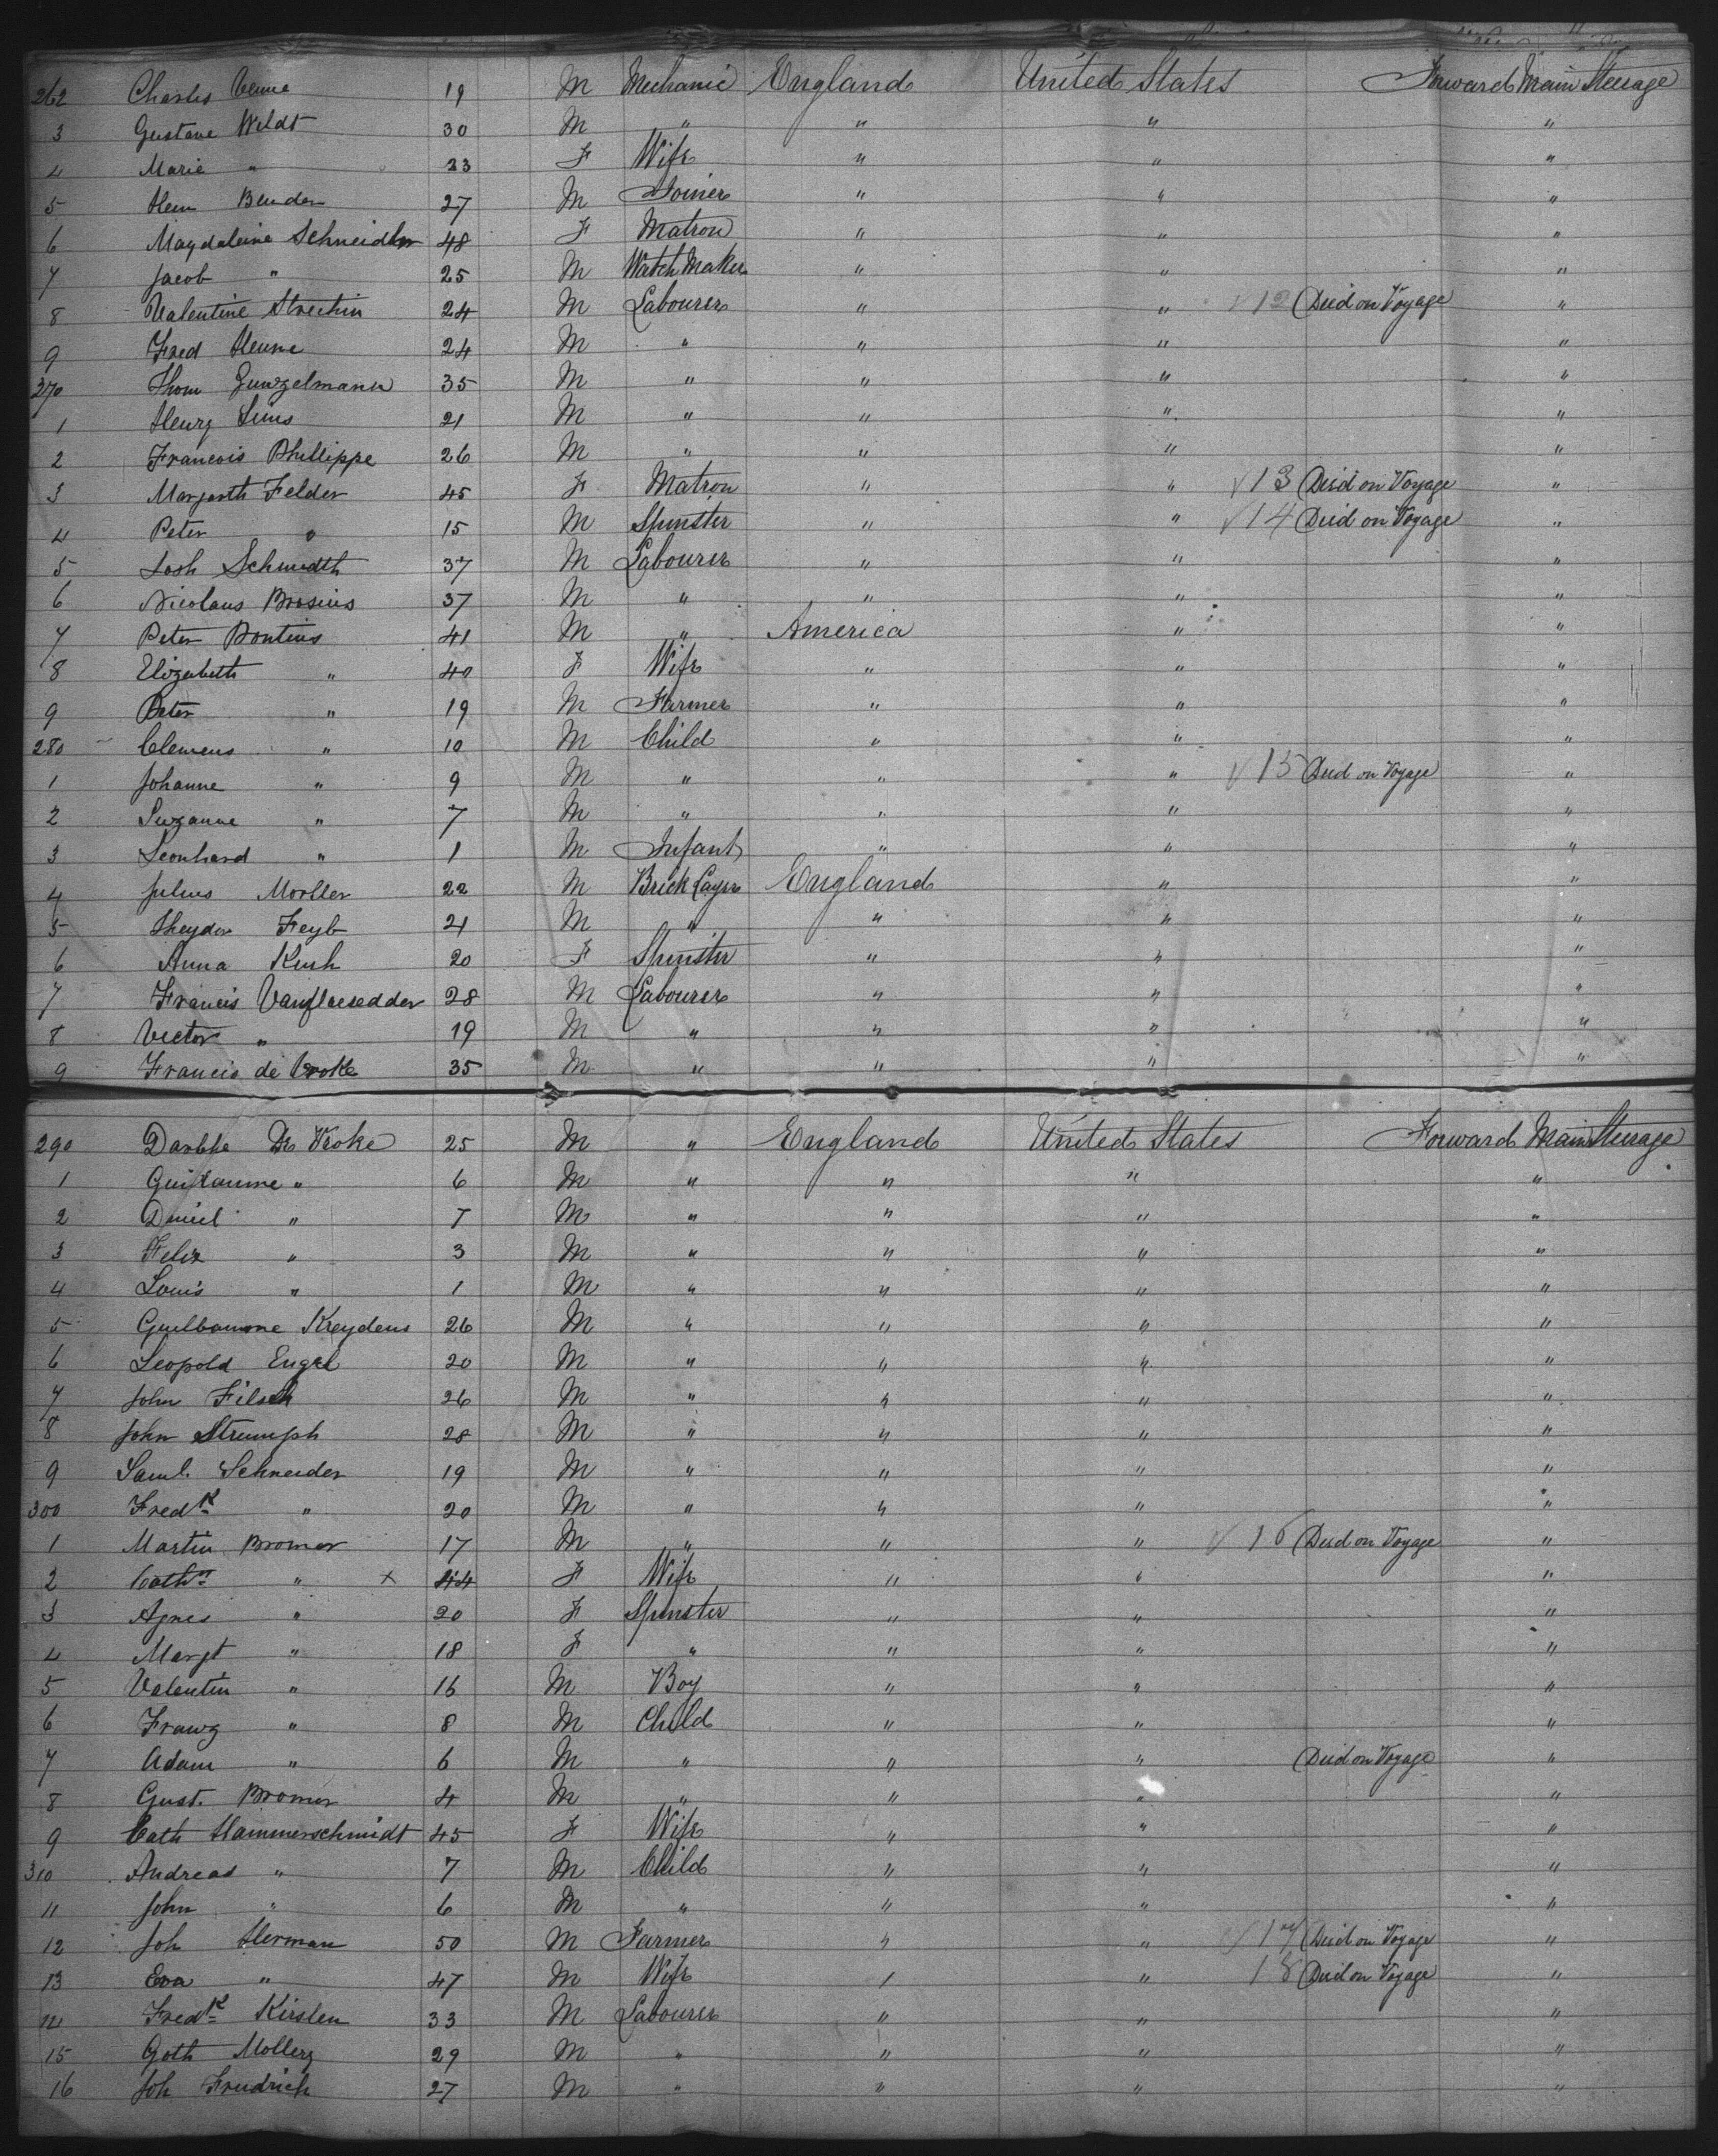 262 Charles Venne 19 M Mechanic England United States Forward Main Steerage
3 Gustave Weldt 30 M " " " "
4 Marie " 23 F Wife " " "
5 Hein Bender 27 M Joiner " " "
6 Magdaleine Schneidler 48 F Matron " " "
7 Jacob " 25 M Watch Maker " " "
8 Valentine 24 M Labourer " " 12 Died on Voyage "
9 Fred Henne 24 M " " " "
270 Thom Gunzelmann 35 M " " " "
1 Henry 21 M " " " "
2 Francois Phillippe 26 M " " " "
3 Margarth Felder 45 F Matron " " 13 Died on Voyage "
4 Peter " 15 M Spinster " " 14 Died on Voyage "
5 Schmidth 37 M Labourer " " "
6 Nicolaus Brosius 37 M " " " "
7 Peter Pontius 41 M " America " "
8 Elizabeth " 40 F Wife " " "
9 Peter " 19 M Farmer " " "
280 Clemens " 10 M Child " " "
1 Johanne " 9 M " " " 15 Died on Voyage "
2 Suzanne " 7 M " " " "
3 Leonhard " 1 M Infant " " "
4 Julius Moeller 22 M Brick Layer England " "
5 Feyb 21 M " " " "
6 Anna Kush 20 F Spinster " " "
7 Francis Vanflaesedder 28 M Labourer " " "
8 Victor " 19 M " " " "
9 Francis de Vroke 35 M " " " "
290 De Vroke 25 M " England United States Forward Main Steerage
1 Guillaume " 6 M " " " "
2 Daniel " 7 M " " " "
3 Felix " 3 M " " " "
4 Louis " 1 M " " " "
5 Guilbaumne Kreydens 26 M " " " "
6 Leopold Engel 20 M " " " "
7 John Filsch 26 M " " " "
8 John Strumph 28 M " " " "
9 Saml. Schneider 19 M " " " "
300 Fredk " 20 M " " " "
1 Martin Bromer 17 M " " " 16 Died on Voyage "
2 Cathn " x 44 F Wife " " "
3 Agnes " 20 F Spinster " " "
4 Margt " 18 F " " " "
5 Valentin " 16 M Boy " " "
6 Franz " 8 M Child " " "
7 Adam " 6 M " " " Died on Voyage "
8 Gust. Bromer 4 M " " " "
9 Cath Hammerschmidt 45 F Wife " " "
310 Andreas " 7 M Child " " "
11 John " 6 M " " " "
12 Joh Herman 50 M Farmer " " 17 Died on Voyage "
13 Eva " 47 M Wife " " 18 Died on Voyage "
14 Fredk Kirslen 33 M Labourer " " "
15 Goth Mollerz 29 M " " " "
16 Joh Friedrich 27 M " " " "